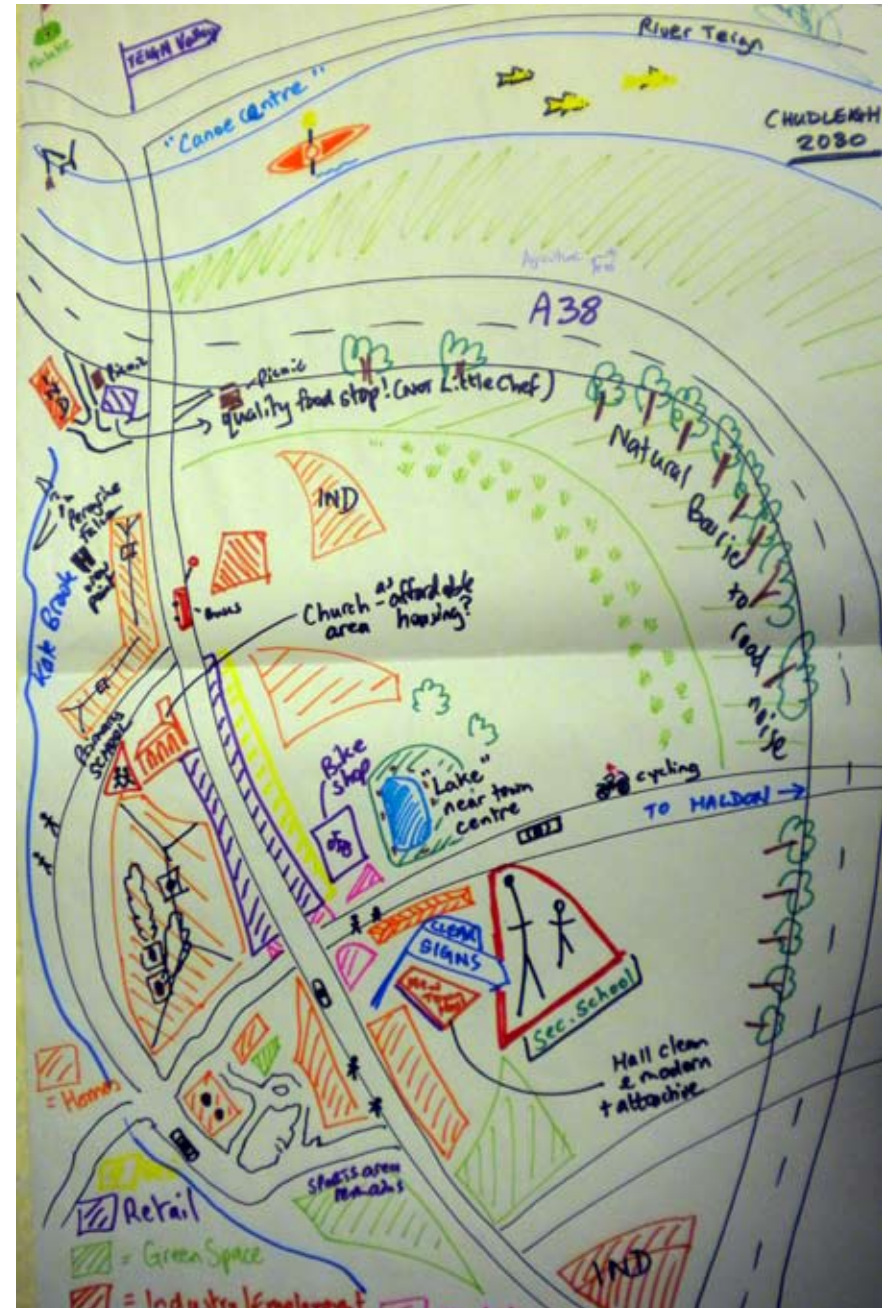 TEIGN Valley
River Teign
"Canoe Centre"
CHUDLEIGH
2030
A38
Picnic
Picnic
quality food stop! (NOT Little Chef)
IND
IND
Natural
Barrier
to
road
noise
Peregrine
Falcon
Kate Brook
Buses
Church - as affordable
area housing?
Primary
SCHOOL
Bike
Shop
"Lake"
near town
centre
cycling
TO HALDON →
CLEAR
SIGNS
New Town
Hall
Sec. School
Hall clean
& modern
+ attractive
= Homes
Sports area
remains
Retail
= Green Space
= Industrial/Employment
IND